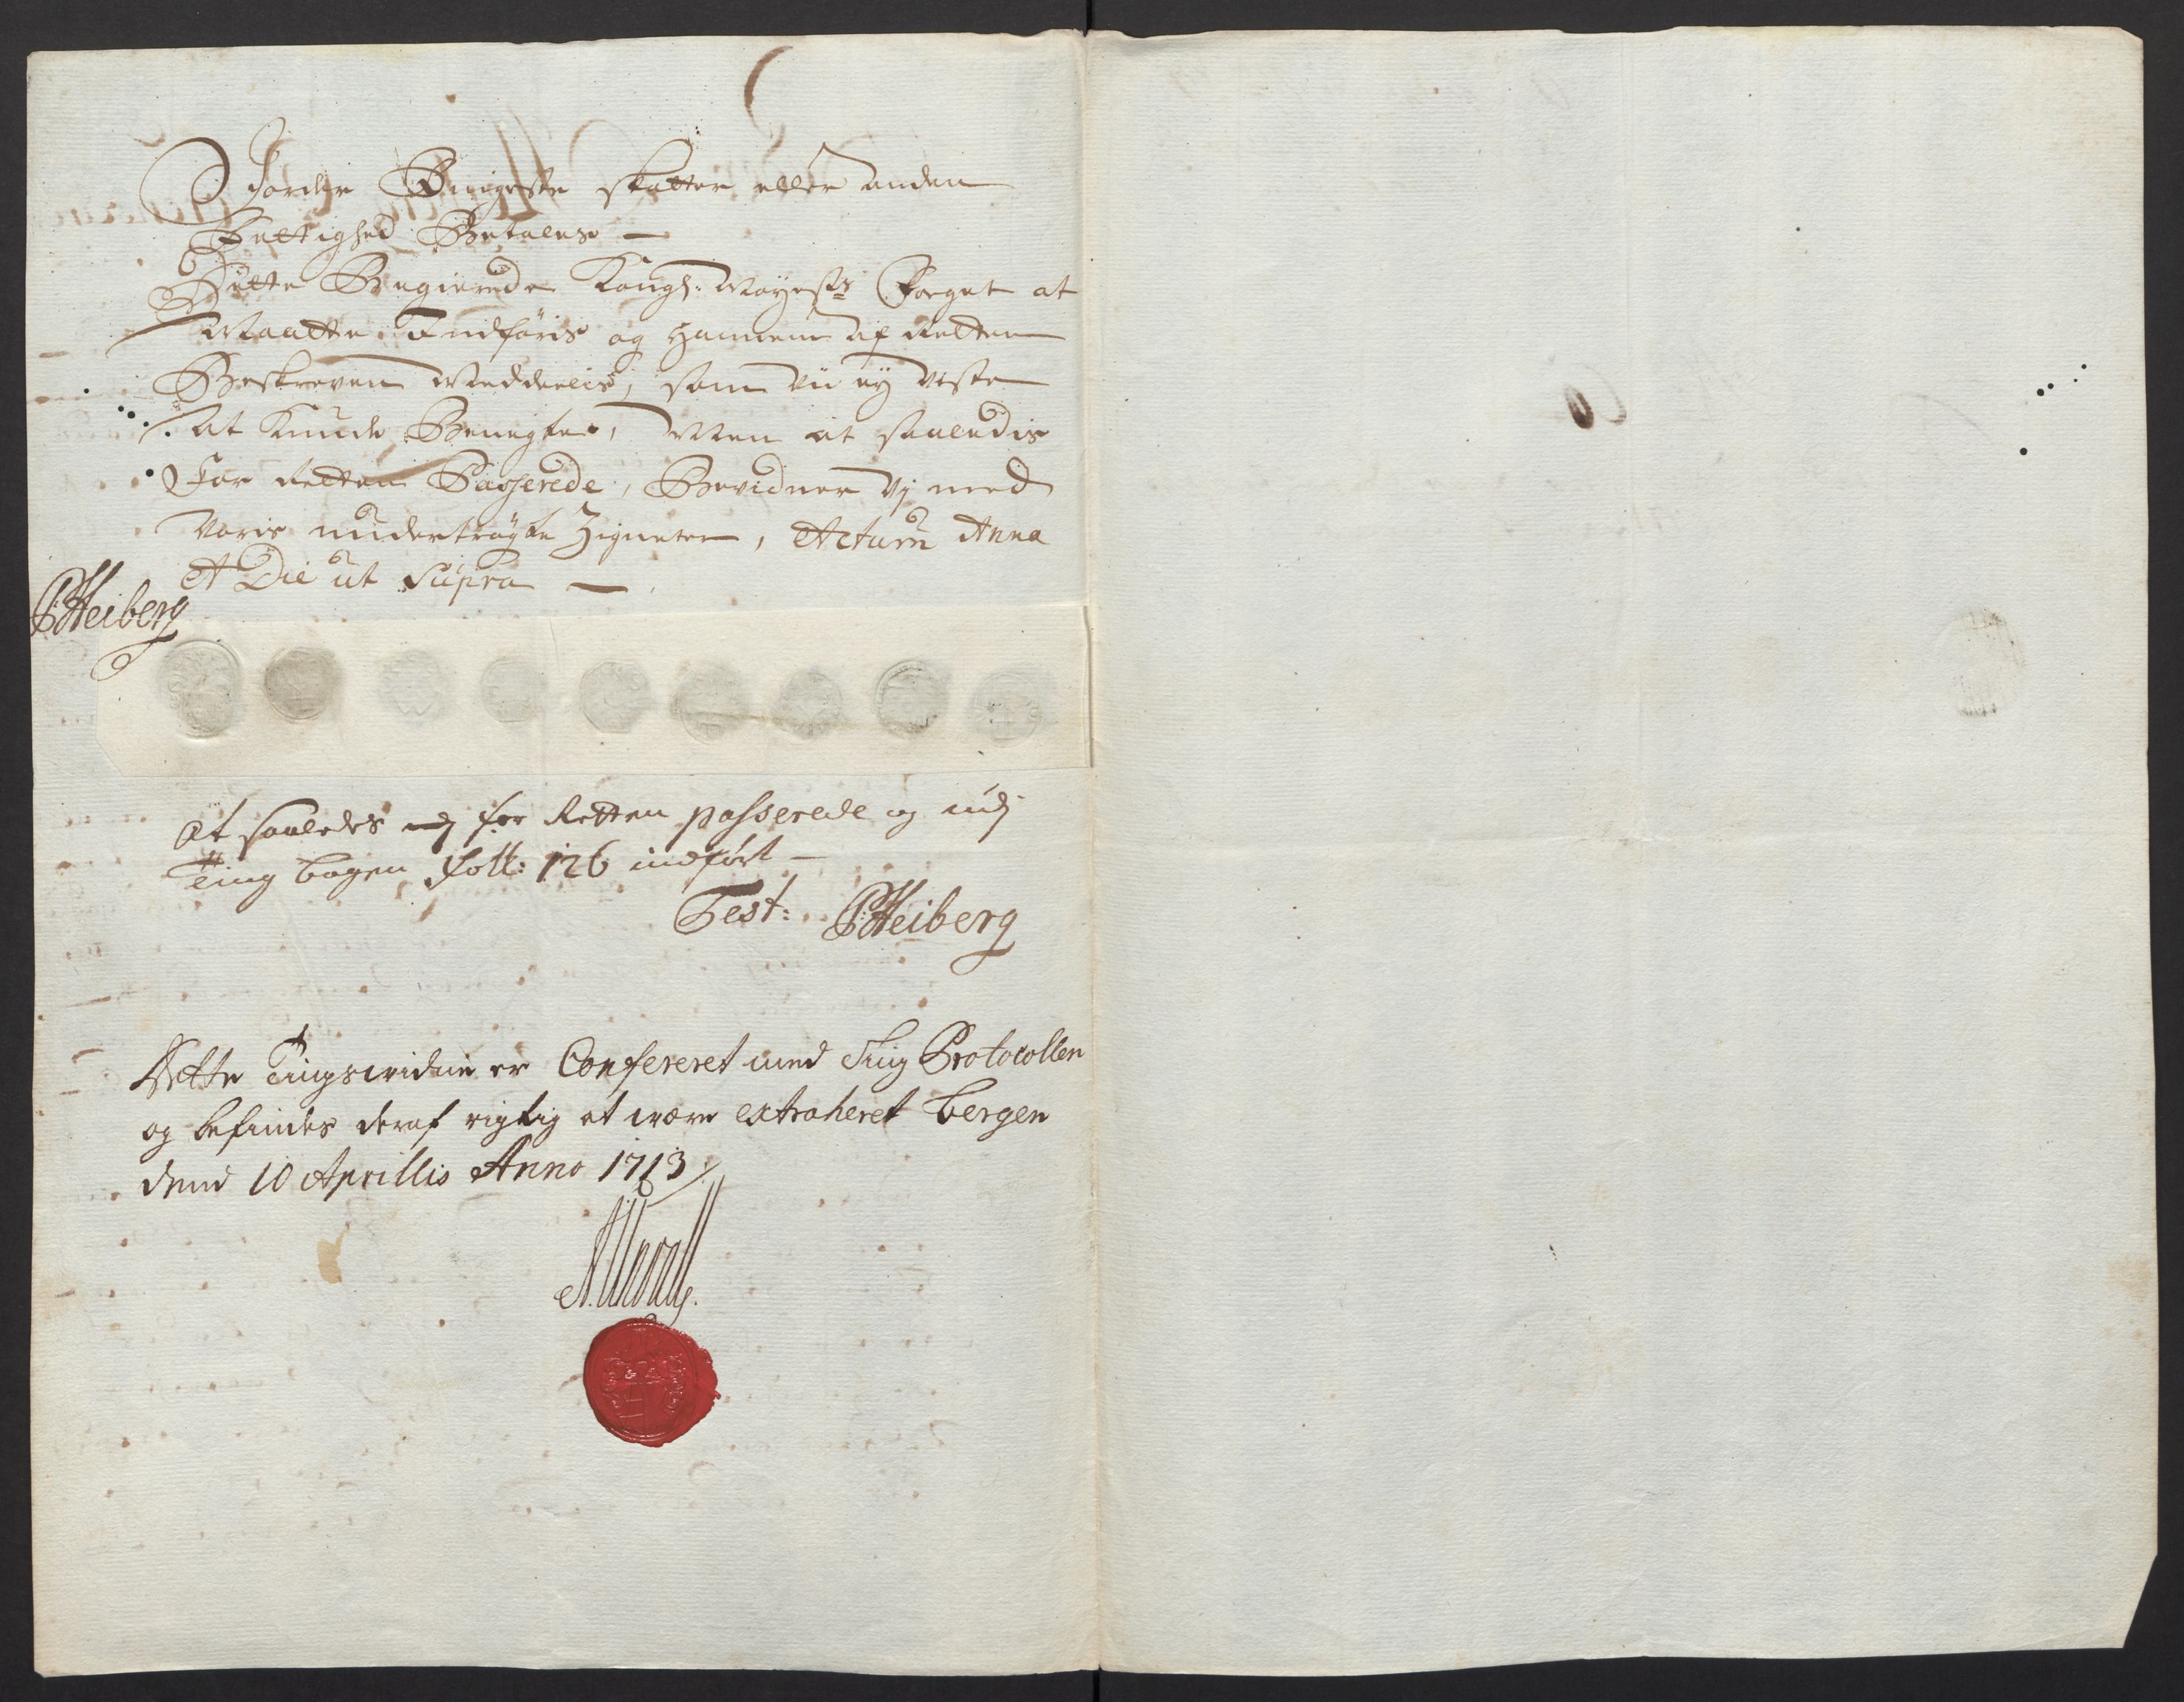 Jorder Ringeste skatter eller anden
Rettighed Betales —
Dette Begierede Kongl: Mayests Foget at
Maatte Indføris og hannem af Retten
Beskreven Meddeelis, som vii ey viste
At Kunde Benegte, Men at saaledis
For Retten Passerede, Bevidner Vj med
Voris undertrøgte Zigneter, Actum Anno
et Die ut Supra —
PHeiberg
At saaledes for Retten passerede og udj
Ting bogen Foll: 126 indført —
Test: PHeiberg
Dette Tingsvidne er Confereret med Ting Protocollen
og befindes deraf rigtig at være extraheret Bergen
dend 10 Aprillis Anno 1713